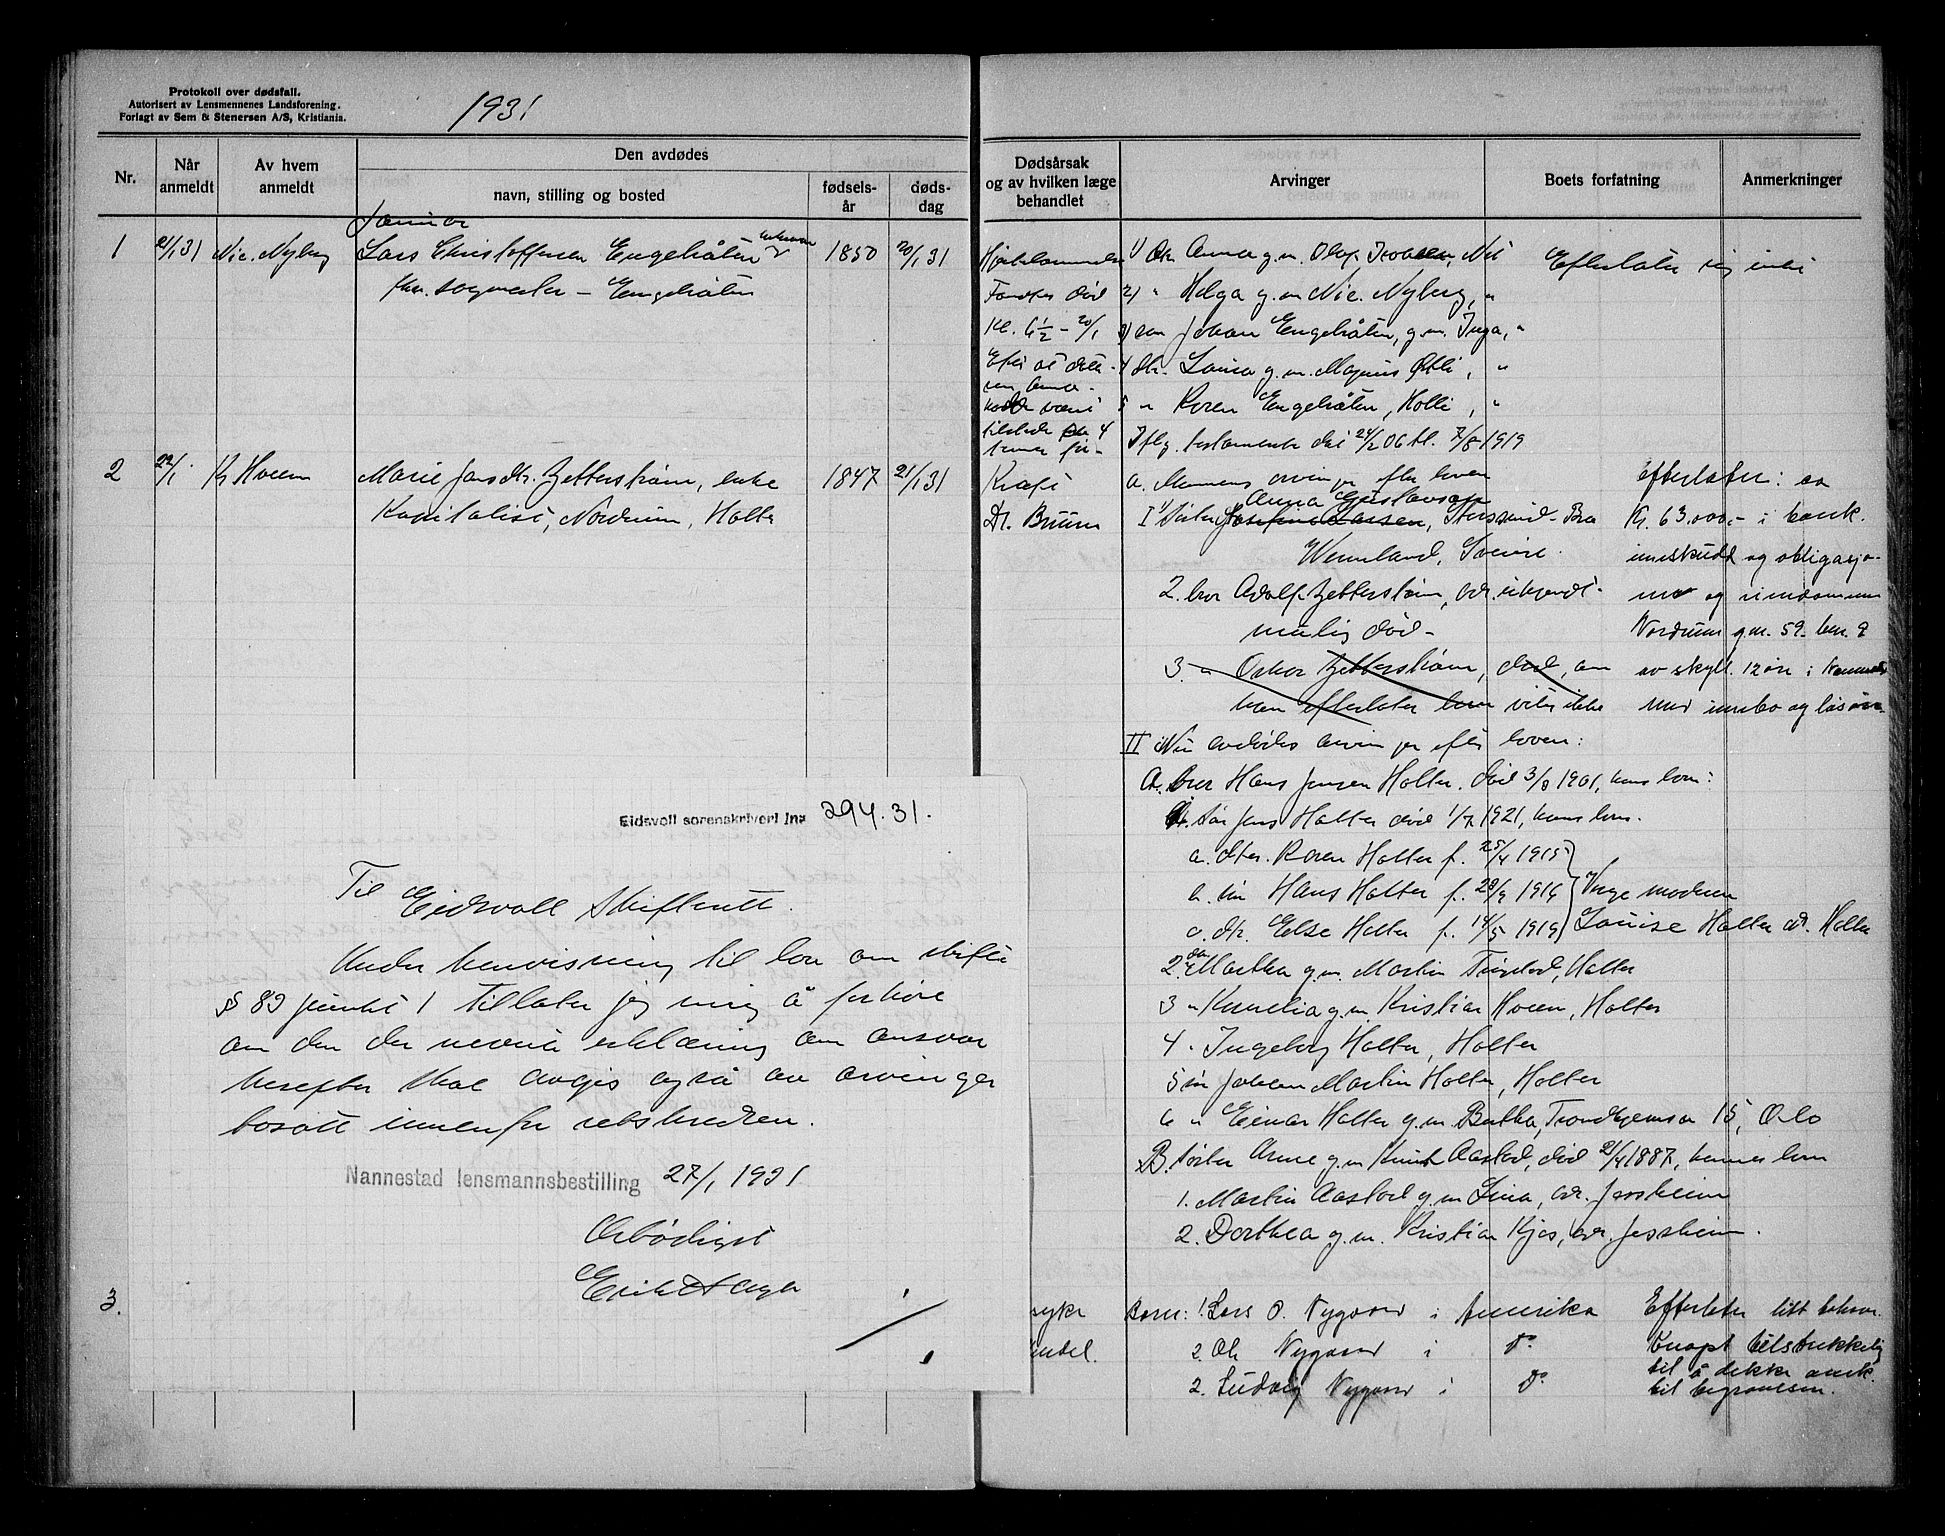 Protokoll over dødsfall.
Autorisert av Lensmennenes Landsforening.
Forlagt av Sem & Stenersen A/S, Kristiania.
1931
Nr.
Når anmeldt
Av hvem anmeldt
Den avdødes
navn, stilling og bosted
fødsels-år
døds-dag
Januar
1
21/1 31
Nic. Nyberg
Lars Christoffersen Engebråten
1850
20/1 31
– Engebråten
2
22/1
K. Hoem
Marie Jensdtr. Zetterstrøm, enke
1847
21/1 31
Kapitalist, Nordrum, Holter
Eidsvoll sorenskriveri Jnr. 294.31.
Til
Eidsvoll Skifterett.
Under henvisning til lov om skifte
§ 83 punkt 1 tillater jeg mig å forhøre
om den der nevnte erklæring om ansvar
herefter skal avgis også av arvinger
bosatt innenfor retskredsen.
Nannestad lensmannsbestilling 27/1 1931
Ærbødigst
3.
Dødsårsak
og av hvilken læge
behandlet
Arvinger
Boets forfatning
Anmerkninger
1) Dtr. Anna g.m. Olaf
Efterlater sig intet
død
2) " Helga g.m. Nic. Nyberg, "
Kl. 6 1/2 - 20/1
3) søn Johan Engebråten, g.m. Inga, "
4 dtr. Lovisa g.m. Magnus
5 " Karen Engebråten, Holter, "
Iflg. testamente dat 24/2 06 tl. 7/8 1919
Kreft
a. Mannens arvinger efter loven
efterlater: ca
Dr. Bruun
Anna Gustavson
I 1 Søster Josefine Larsen,
Kr. 63.000,- i bank.
Wermland, Sverige.
inneskudd og obligasjo-
2. bror Adolf Zetterstrøm, adr. ukjendt-
ner og eiendommen
mulig død-
Nordrum g.nr. 59. br.nr. 9
3. " Oskar Zetterstrøm, død, om
av skyld 12 øre i Nannestad
han efterlater barn vites ikke
med innbo og løsøre
II Nu avdødes arvinger efter loven:
A. bror Hans Jensen Holter. død 3/8 1901, hans barn:
1. søn Jens Holter død 1/7 1921, hans barn.
a. dtr. Karen Holter f. 25/4 1915
b. søn Hans Holter f. 28/9 1916
Verge moderen
c. dtr. Else Holter f. 14/5 1919
Louise Holter adr. Holter
2. dtr. Martha g.m. Martin Tingstad, Holter
3 " Kornelia g.m. Kristian Hoem, Holter
4 " Ingeborg Holter, Holter
5 søn Johan Martin Holter, Holter
6 " Einar Holter g.m. Bertha, Trondhjemsv 15, Oslo
B. søster Anne g.m. Knut Aastad, død 21/4 1887, hennes barn
1. Martin Aastad g.m. Lina, adr. Jessheim
2. Dorthea g.m. Kristian Kjos, adr. Jessheim.
Barn: 1. Lars O. Nygaard i Amerika
Efterlater litt løsøre.
2. Ole Nygaard i do
Knapt tilstrekkelig
2. Ludvig Nygaard i do
til å dekke omk.
til begravelsen.